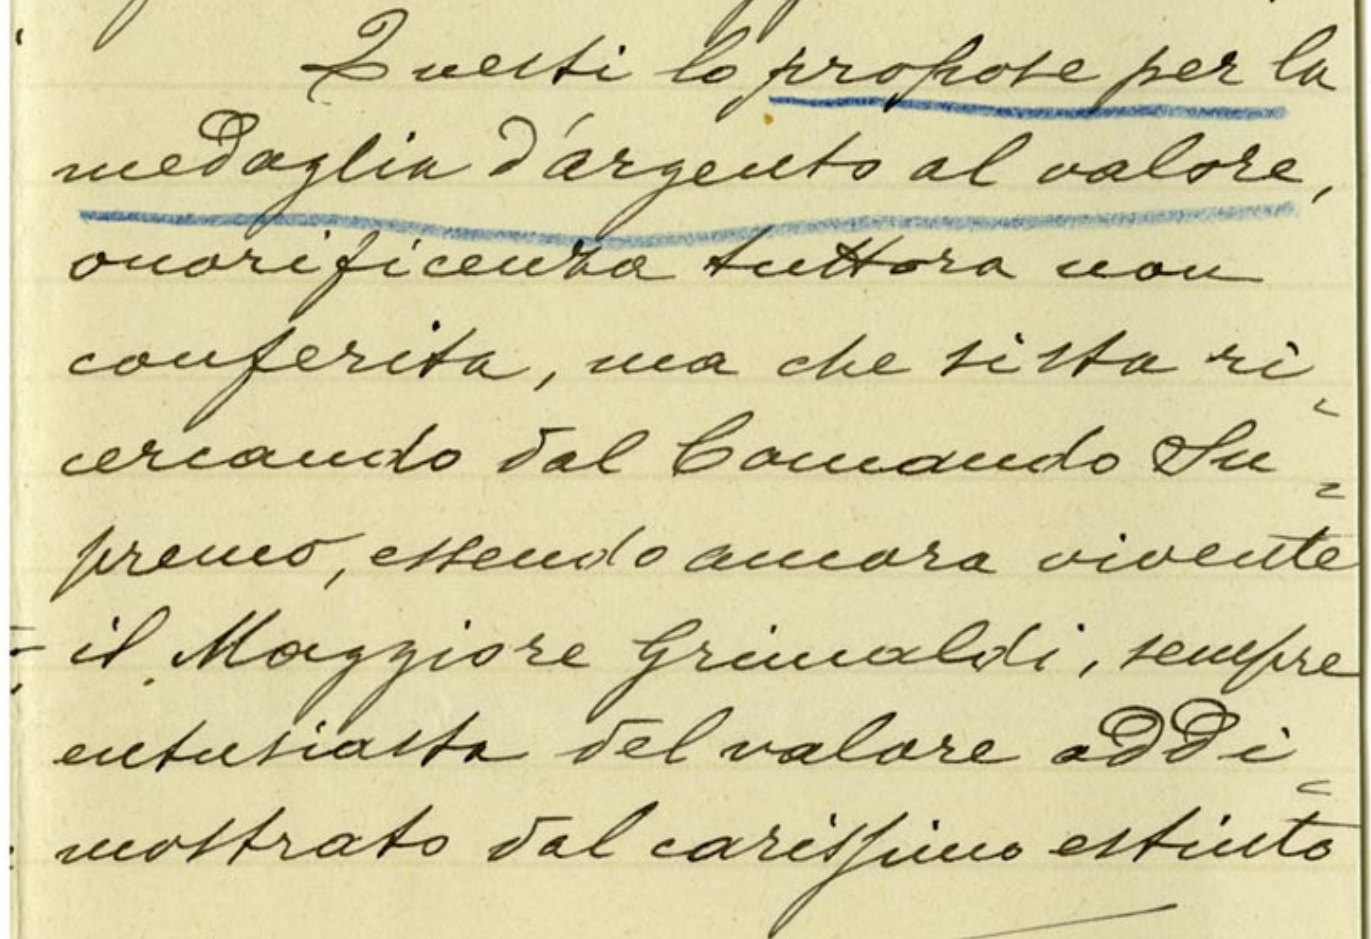 Questi lo propose per la
medaglia d'argento al valore,
onorificenza tuttora non
conferita, ma che si sta ri=
cercando dal Comando Su=
premo, essendo ancora vivente
il Maggiore Grimaldi, sempre
entusiasta del valore addi=
mostrato dal carissimo estinto